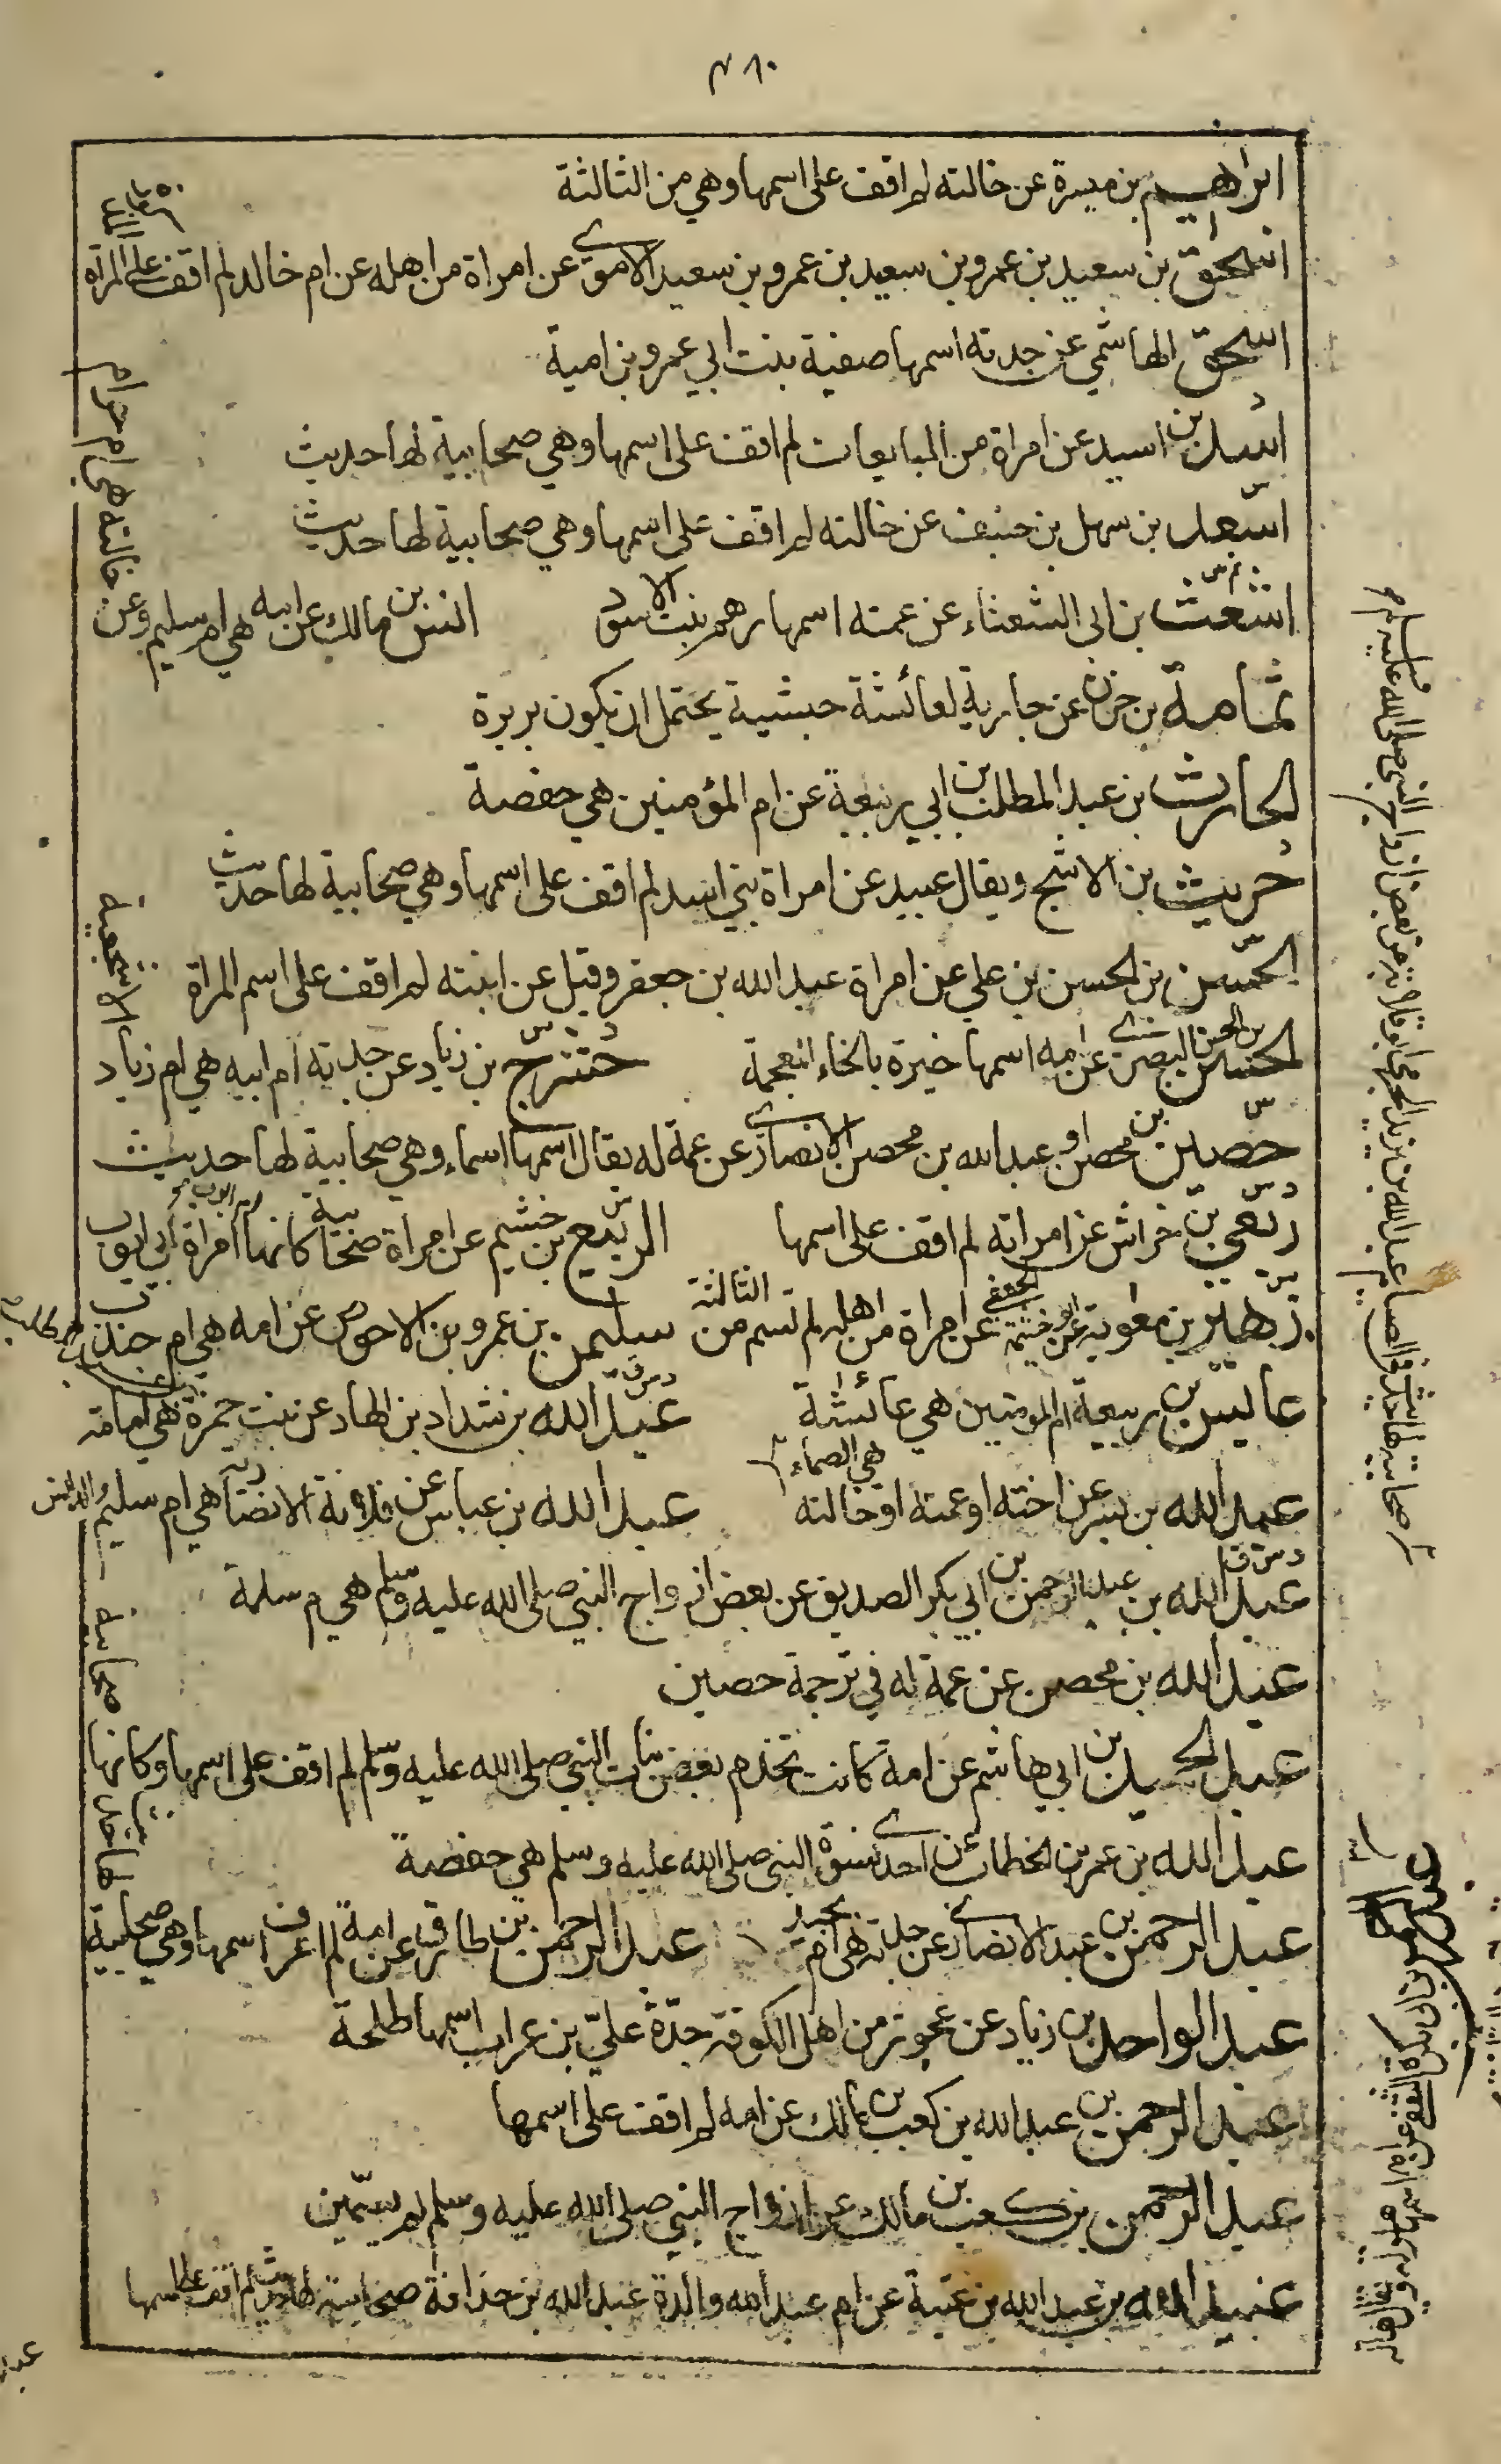 ٤٨٠
ابراهيم بن ميسرة عن خالته لم اقف على اسمها وهي من الثالثة
اسحق بن سعيد بن عمرو بن سعيد بن عمرو بن سعيد الاموي عن امراة من اهله عن ام خالد لم اقف على المراة
اسحق الهاشمي عن جدته اسمها صفية بنت ابي عمرو بن امية
اسيد بن اسيد عن امراة من المبايعات لم اقف على اسمها وهي صحابية لها حديث
اسعد بن سهل بن حنيف عن خالته لم اقف على اسمها وهي صحابية لها حديث
اشعث بن ابى الشعثاء عن عمته اسمها رهم بنت الاسود انس بن مالك عن هي ام سليم وعن
خالته هي ام حرام
ثمامة بن حزن عن جارية لعائشة حبشية يحتمل ان يكون بريرة
الحارث بن عبد المطلب بن ابي ربيعة عن ام المؤمنين هي حفصة
حريث بن الاشج ويقال عبيد عن امراة بني اسد لم اقف على اسمها وهي صحابية لها حديث
الحسن بن الحسن بن علي عن امراة عبد الله بن جعفر وقيل عن ابنته لم اقف على اسم المراة
الحسن بن ابي الحسن البصري عن امه اسمها خيرة بالخاء المعجمة حشرج بن زياد عن جدته ام ابيه هي ام زياد
الاشجعية
حصين بن محصن او عبد الله بن محصن الانصاري عن عمة له يقال اسمها اسماء وهي صحابية لها حديث
ربعي بن خراش عن امراته لم اقف على اسمها الربيع بن خثيم عن امراة صحابية كانها امراة ابي ايوب
زهير بن معوية عن امراة من اهله لم تسم من الثالثة سليمن بن عمرو بن الاحوص عن امه هي ام جندب
عابس بن ربيعة ام المومنين هي عائشة عبد الله بن شداد بن الهاد عن بنت حمزة هي امامة
عبد الله بن بسر عن اخته او عمته او خالته هي الصماء عبد الله بن عباس عن فلانة الانصارية هي ام سليم
عبد الله بن عبد الرحمن بن ابي بكر الصديق عن بعض ازواج النبي صلى الله عليه وسلم هي ام سلمة
عبد الله بن محصن عن عمة له في ترجمة حصين
عبد الحميد بن ابي هاشم عن امه كانت تخدم بعض بنات النبي صلى الله عليه وسلم لم اقف على اسمها وكانها
صحابية
عبد الله بن عمر بن الخطاب عن احدى نسوة النبي صلى الله عليه وسلم هي حفصة
عبد الرحمن بن عبد الانصاري عن جدته هي ام بجيد عبد الرحمن بن طارق عن امه لم اعرف اسمها وهي صحابية
لها حديث
عبد الواحد بن زياد عن عجوز من اهل الكوفة جدة علي بن غراب اسمها طلحة
عبد الرحمن بن عبد الله بن كعب بن مالك عن امه لم اقف على اسمها
عبد الرحمن بن كعب بن مالك عن ازواج النبي صلى الله عليه وسلم لم يسمين
عبيد الله بن عبد الله بن عتبة عن ام عبد الله والدة عبد الله بن حذافة صحابية لها حديث لم اقف على اسمها